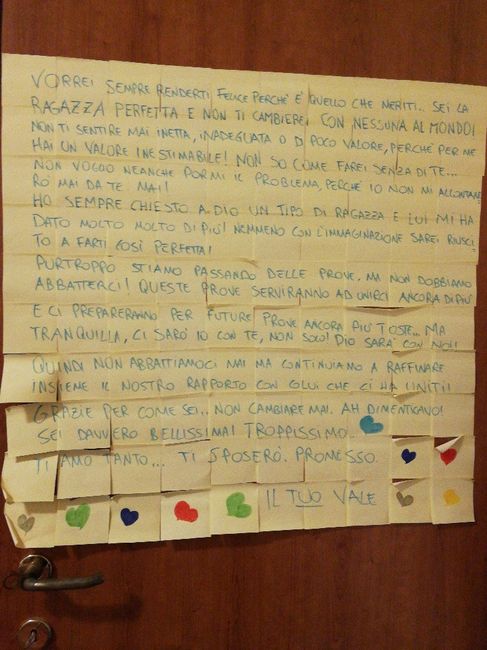 VORREI SEMPRE RENDERTI FELICE PERCHÈ È QUELLO CHE MERITI.. SEI LA
RAGAZZA PERFETTA E NON TI CAMBIEREI CON NESSUNA AL MONDO!
NON TI SENTIRE MAI INETTA, INADEGUATA O DI POCO VALORE, PERCHÈ PER ME
HAI UN VALORE INESTIMABILE! NON SO COME FAREI SENZA DI TE...
NON VOGLIO NEANCHE PORMI IL PROBLEMA, PERCHÈ IO NON MI ALLONTANE
RÒ MAI DA TE. MAI!
HO SEMPRE CHIESTO A DIO UN TIPO DI RAGAZZA E LUI MI HA
DATO MOLTO MOLTO DI PIÙ! NEMMENO CON L'IMMAGINAZIONE SAREI RIUSCI
TO A FARTI COSÌ PERFETTA!
PURTROPPO STIAMO PASSANDO DELLE PROVE, MA NON DOBBIAMO
ABBATTERCI! QUESTE PROVE SERVIRANNO AD UNIRCI ANCORA DI PIÙ
E CI PREPARERANNO PER FUTURE PROVE ANCORA PIÙ TOSTE... MA
TRANQUILLA, CI SARÒ IO CON TE, NON SOLO! DIO SARÀ CON NOI!
QUINDI NON ABBATTIAMOCI MAI MA CONTINUIAMO A RAFFINARE
INSIEME IL NOSTRO RAPPORTO CON COLUI CHE CI HA UNITI!
GRAZIE PER COME SEI.. NON CAMBIARE MAI. AH DIMENTICAVO!
SEI DAVVERO BELLISSIMA! TROPPISSIMO.
TI AMO TANTO... TI SPOSERÒ. PROMESSO.
IL TUO VALE